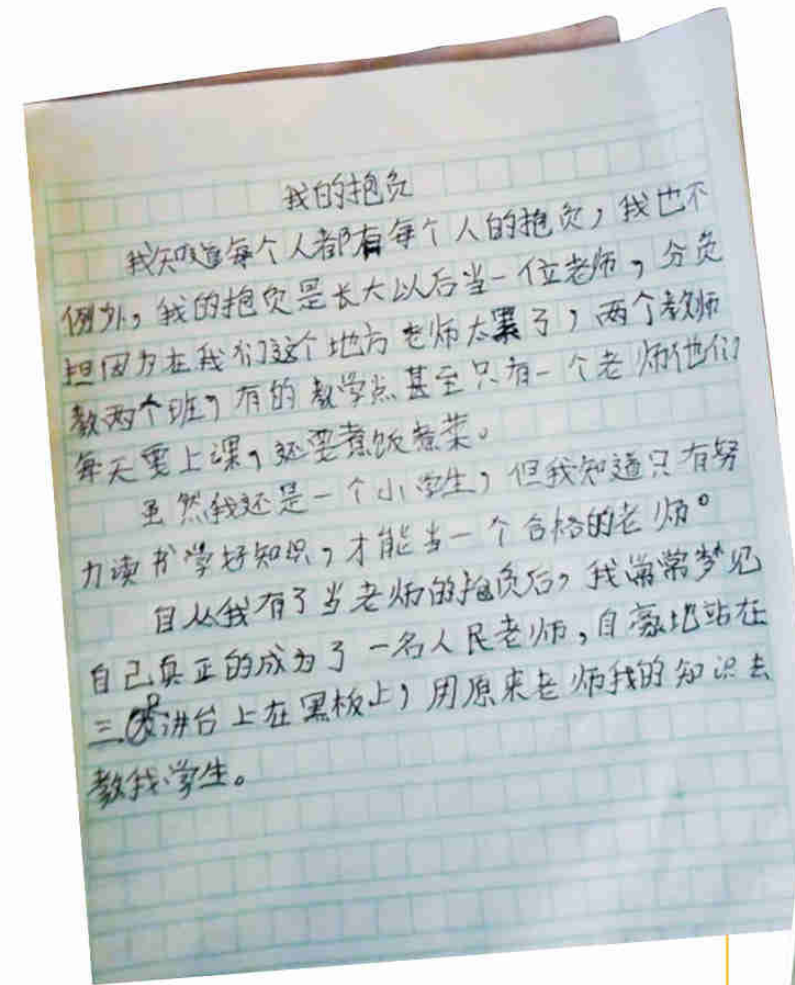 我的抱负
我知道每个人都有每个人的抱负，我也不
例外，我的抱负是长大以后当一位老师，分负
担因为在我们这个地方老师太累了，两个教师
教两个班，有的教学点甚至只有一个老师他们
每天要上课，还要煮饭煮菜。
虽然我还是一个小学生，但我知道只有努
力读书学好知识，才能当一个合格的老师。
自从我有了当老师的抱负后，我常常梦见
自己真正的成为了一名人民老师，自豪地站在
三尺讲台上在黑板上，用原来老师我的知识去
教我学生。